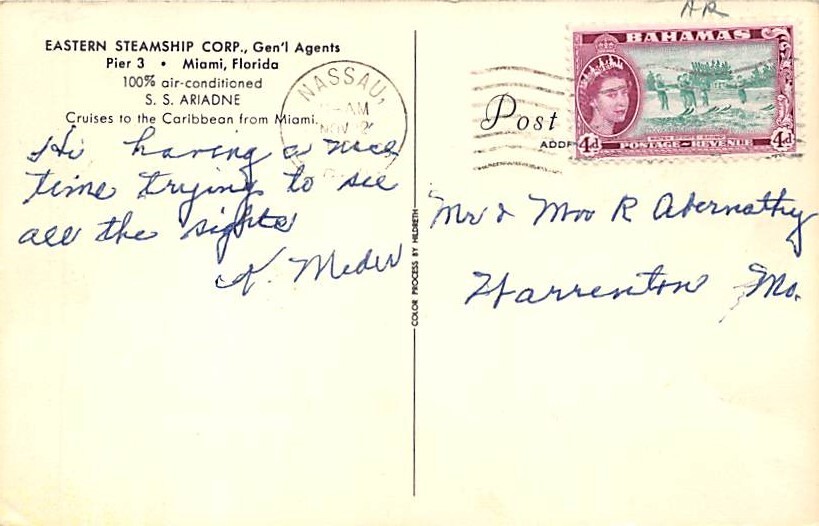 AR
EASTERN STEAMSHIP CORP., Gen'l Agents
Pier 3 • Miami, Florida
100% air-conditioned
S. S. ARIADNE
Cruises to the Caribbean from Miami.
NASSAU
AM
NOV
Hi having a nice
time trying to see
all the sights
K. Meder
COLOR PROCESS BY HILDRETH
Post
ADD
BAHAMAS
4d POSTAGE REVENUE 4d
Mr & Mrs R Abernathy
Warrenton Mo.